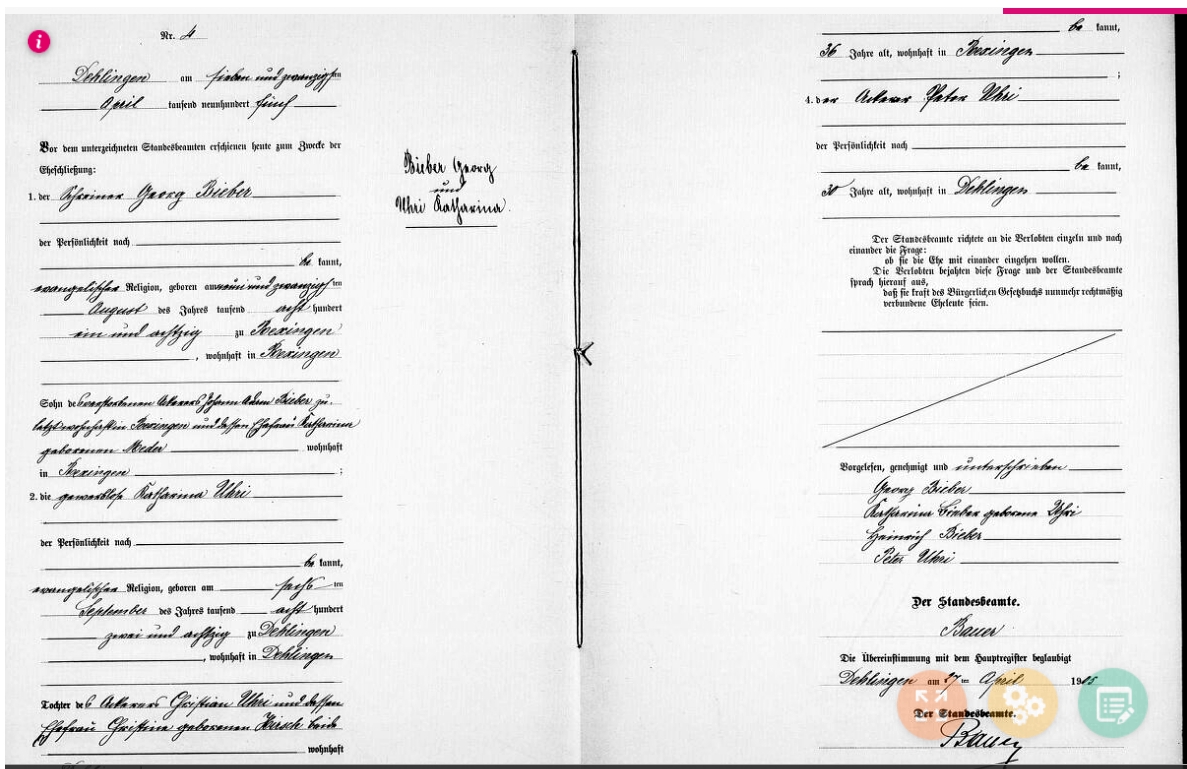 Nr. 4
Dehlingen am sieben und zwanzigsten
April tausend neunhundert fünf
Vor dem unterzeichneten Standesbeamten erschienen heute zum Zwecke der
Eheschließung:
1. der Schreiner Georg Bieber
der Persönlichkeit nach
be kannt,
evangelischer Religion, geboren am neun und zwanzigsten
August des Jahres tausend acht hundert
ein und achtzig zu Rexingen
, wohnhaft in Rexingen
Sohn des verstorbenen Ackerers Johann Adam Bieber zu-
letzt wohnhaft in Rexingen und dessen Ehefrau Katharina
geborenen Meder wohnhaft
in Rexingen ;
2. die gewerblose Katharina Uhri
der Persönlichkeit nach
be kannt,
evangelischer Religion, geboren am sechsten
September des Jahres tausend acht hundert
zwei und achtzig zu Dehlingen
, wohnhaft in Dehlingen
Tochter des Ackerers Christian Uhri und dessen
Ehefrau Christine geborenen Kirsch beide
wohnhaft
Bieber Georg
und
Uhri Katharina.
be kannt,
36 Jahre alt, wohnhaft in Rexingen
;
4. der Ackerer Peter Uhri
der Persönlichkeit nach
be kannt,
30 Jahre alt, wohnhaft in Dehlingen
Der Standesbeamte richtete an die Verlobten einzeln und nach
einander die Frage:
ob sie die Ehe mit einander eingehen wollen.
Die Verlobten bejahten diese Frage und der Standesbeamte
sprach hierauf aus,
daß sie kraft des Bürgerlichen Gesetzbuchs nunmehr rechtmäßig
verbundene Eheleute seien.
Vorgelesen, genehmigt und unterschrieben
Georg Bieber
Katharina Bieber geborene Uhri
Heinrich Bieber
Peter Uhri
Der Standesbeamte.
Bauer
Die Übereinstimmung mit dem Hauptregister beglaubigt
Dehlingen am 27ten April 1905
Der Standesbeamte.
Bauer